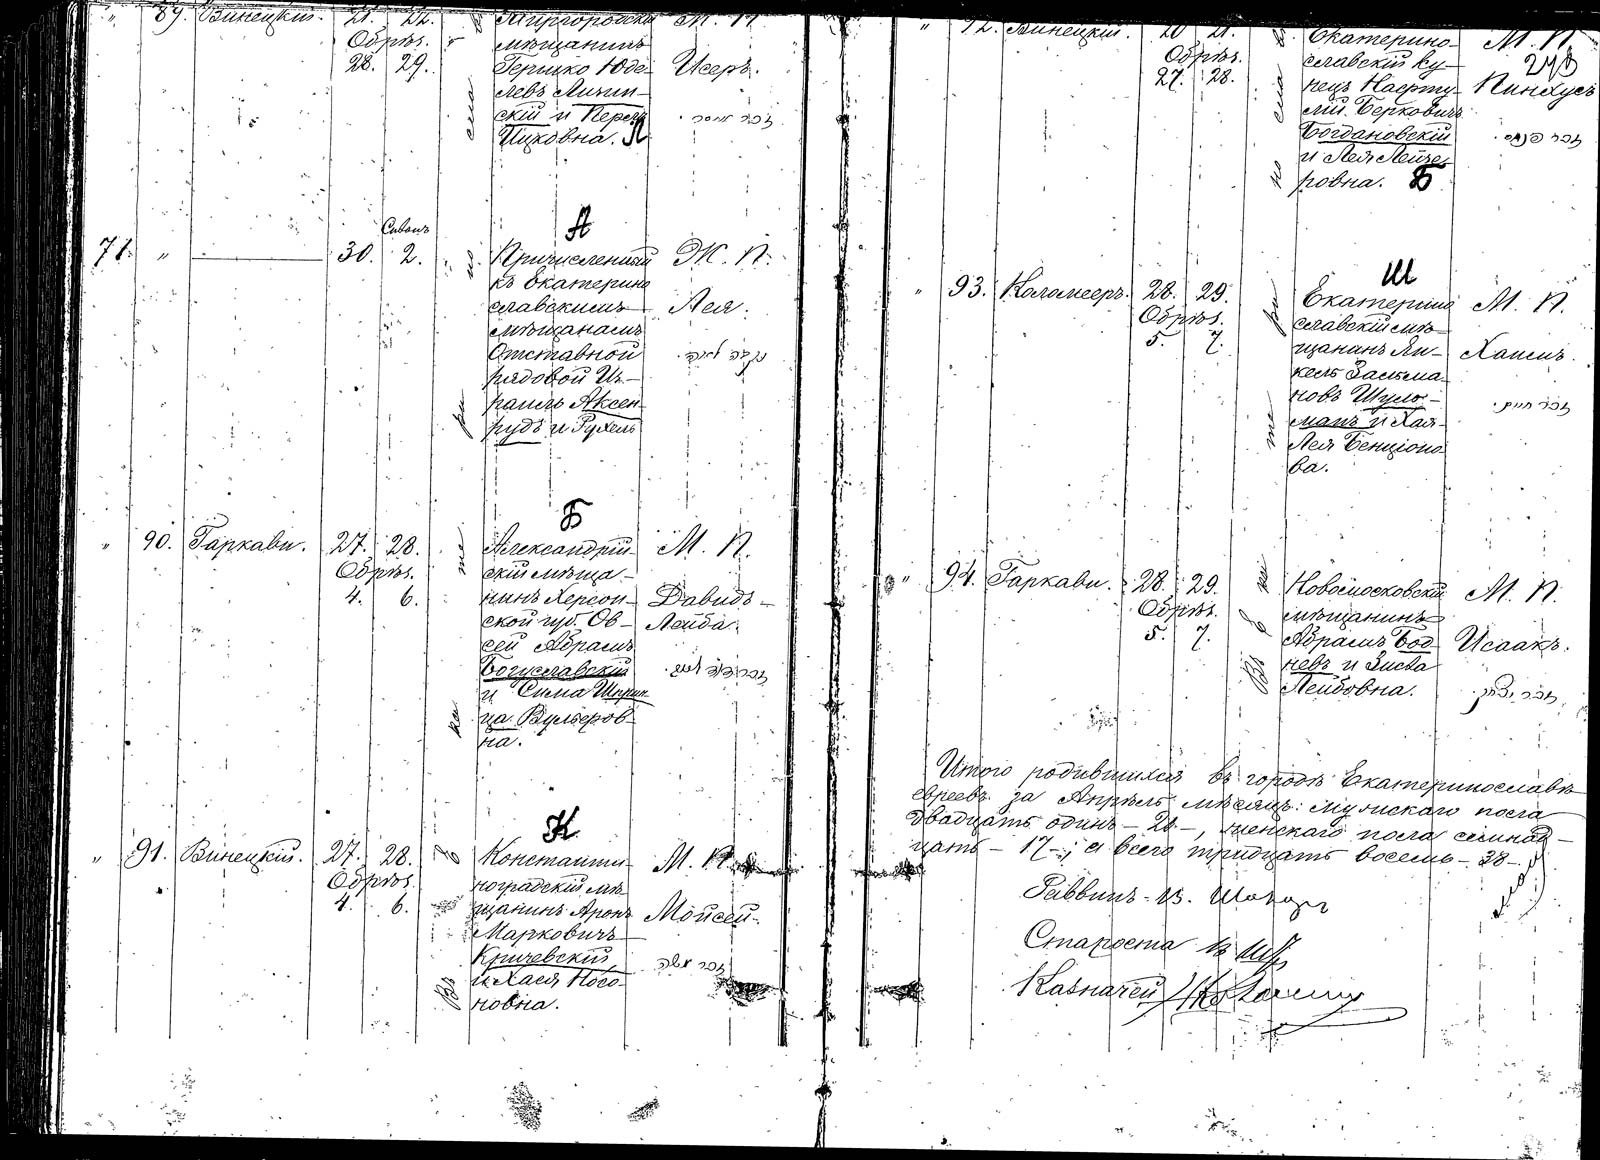 89. Винецкій. 21. 22.
Обрѣз.
28. 29.
мѣщанинъ
Гершко Юде-
левъ Липин-
скій и Перел
Ицковна. Л
М. П.
Исеръ.
71. " 30. Сиванъ 2.
А
Причисленный
къ Екатерино
славскимъ
мѣщанамъ
Отставной
рядовой Из-
раиль Аксен-
рудъ и Рухель
Ж. П.
Лея.
" 90. Гаркави. 27. 28.
Обрѣз.
4. 6.
Б
Александрій-
скій мѣща-
нинъ Херсон-
ской губ. Ов-
сей Абрамъ
Богуславскій
и Сима Шприн
ца Вульфов-
на.
М. П.
Давидъ-
Лейба.
" 91. Винецкій. 27. 28.
Обрѣз.
4. 6.
К
Константи-
ноградскій мѣ-
щанинъ Аронъ
Марковичъ
Кричевскій
и Хася Носо-
новна.
М. П.
Мойсей.
זכר משה
" 92. Винецкій. 20 21.
Обрѣз.
27. 28.
Екатерино-
славскій ку-
пецъ Нафту-
лій Берковичъ
Богдановскій
и Лея Лейзе-
ровна. Б
М. П.
Пинхусъ
זכר פנחס
" 93. Коломееръ. 28. 29.
Обрѣз.
5. 7.
Ш
Екатерино
славскій мѣ-
щанинъ Ян-
кель Залма-
новъ Шуль-
манъ и Хая-
Лея Бенціоно-
ва.
М. П.
Хаимъ.
זכר חיים
" 94. Гаркави. 28. 29.
Обрѣз.
5. 7.
Новомосковскій
мѣщанинъ
Абрамъ Бод-
невъ и Зисва
Лейбовна.
М. П.
Исаакъ.
זכר יצחק
Итого родившихся въ городѣ Екатеринославѣ
евреевъ за Апрѣль мѣсяцъ: мужскаго пола
двадцать одинъ - 21 -, женскаго пола семнад-
цать - 17 -; а всего тридцать восемь - 38 -
Раввинъ
Староста
Казначей